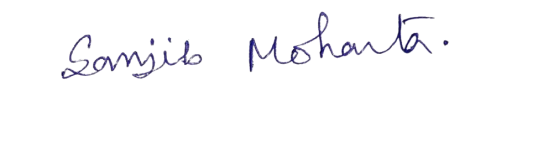 Sanjib Mohanta.